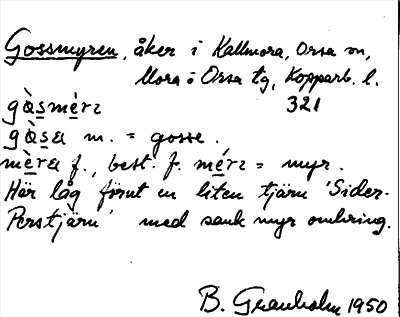 Gossmyren, åker i Kallmora, Orsa sn,
Mora o Orsa tg, Kopparb. l.
321
gò̱smè̱rɛ
gò̱sɛ m. = gosse.
mè̱rɛ f., best. f. mé̱rɛ = myr.
Här låg förut en liten tjärn 'Sider-
Perstjärn' med sank myr omkring.
B. Granholm 1950